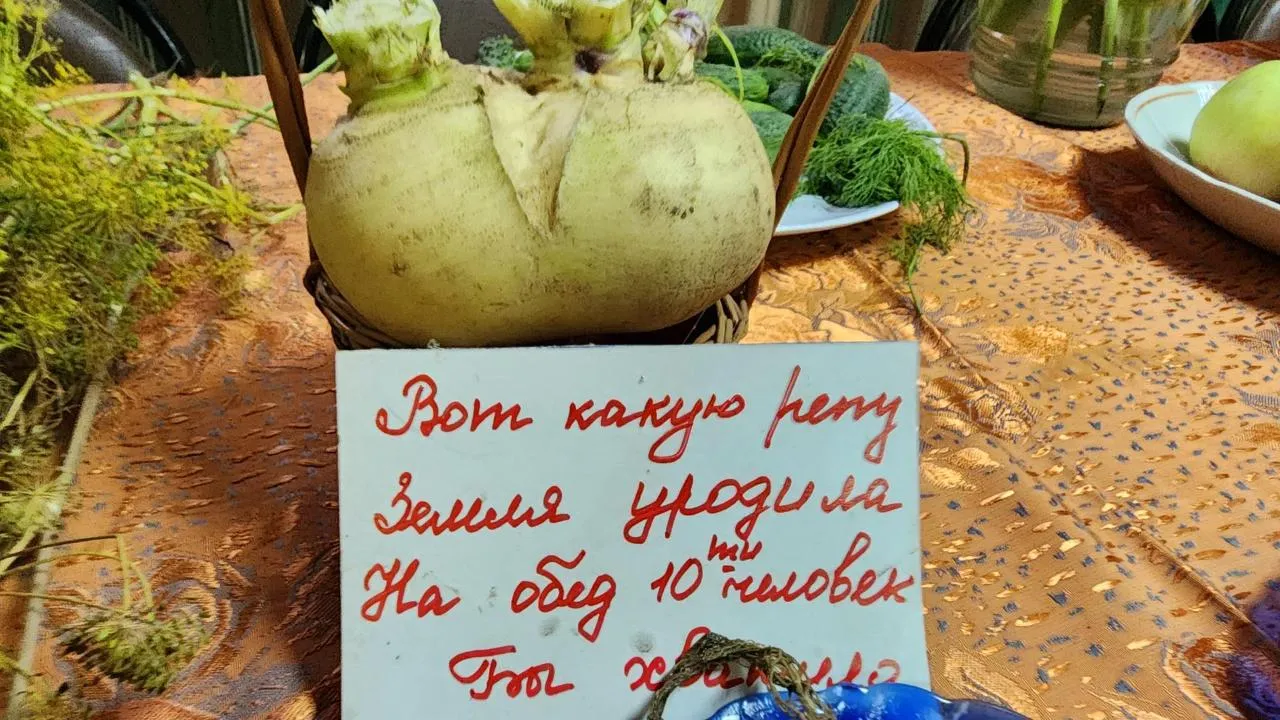 Вот какую репу
Земля уродила
На обед 10ти человек
Бы хватило